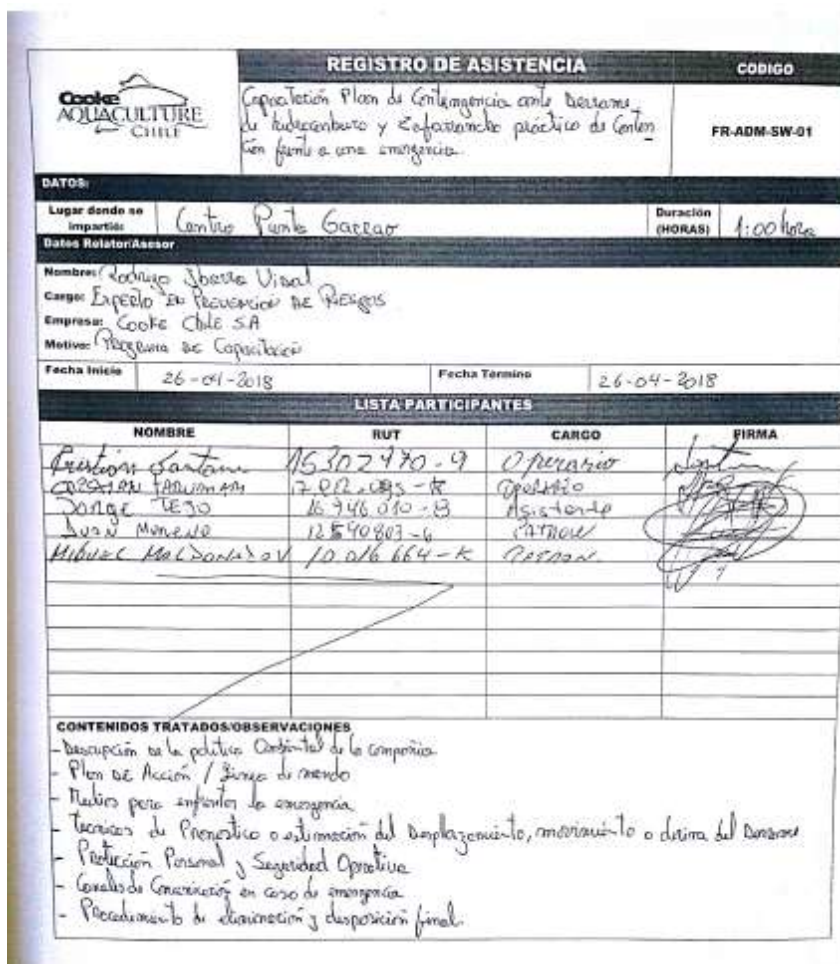 Cooke
AQUACULTURE
CHILE
REGISTRO DE ASISTENCIA
CODIGO
Capacitación Plan de Contingencia ante Derrame
de hidrocarburo y Zafarrancho práctico de Conten
ción frente a una emergencia.
FR-ADM-SW-01
DATOS:
Lugar donde se impartió: Centro Punta Garrao
Duración (HORAS) 1:00 hora
Datos Relator/Asesor
Nombre: Rodrigo Ibarra Vidal
Cargo: Experto en Prevención de Riesgos
Empresa: Cooke Chile S.A
Motivo: Programa de Capacitación
Fecha Inicio 26-04-2018 Fecha Término 26-04-2018
LISTA PARTICIPANTES
NOMBRE RUT CARGO FIRMA
Cristian Santana 15302470-9 Operario
Operario
Jorge Tejo 16.946.010-B Asistente
Juan Moreno 12540803-6 PATRON
MIGUEL MALDONADO V 10.016.664-K PATRON.
CONTENIDOS TRATADOS/OBSERVACIONES
- Descripción de la política Ambiental de la compañia
- Plan DE Acción / de mando
- Medios para enfrentar la emergencia
- Tecnicas de Pronostico o estimación del Desplazamiento, movimiento o deriva del Derrame
- Protección Personal y Seguridad Operativa
- Canales de Comunicación en caso de emergencia
- Procedimiento de eliminación y desposición final.